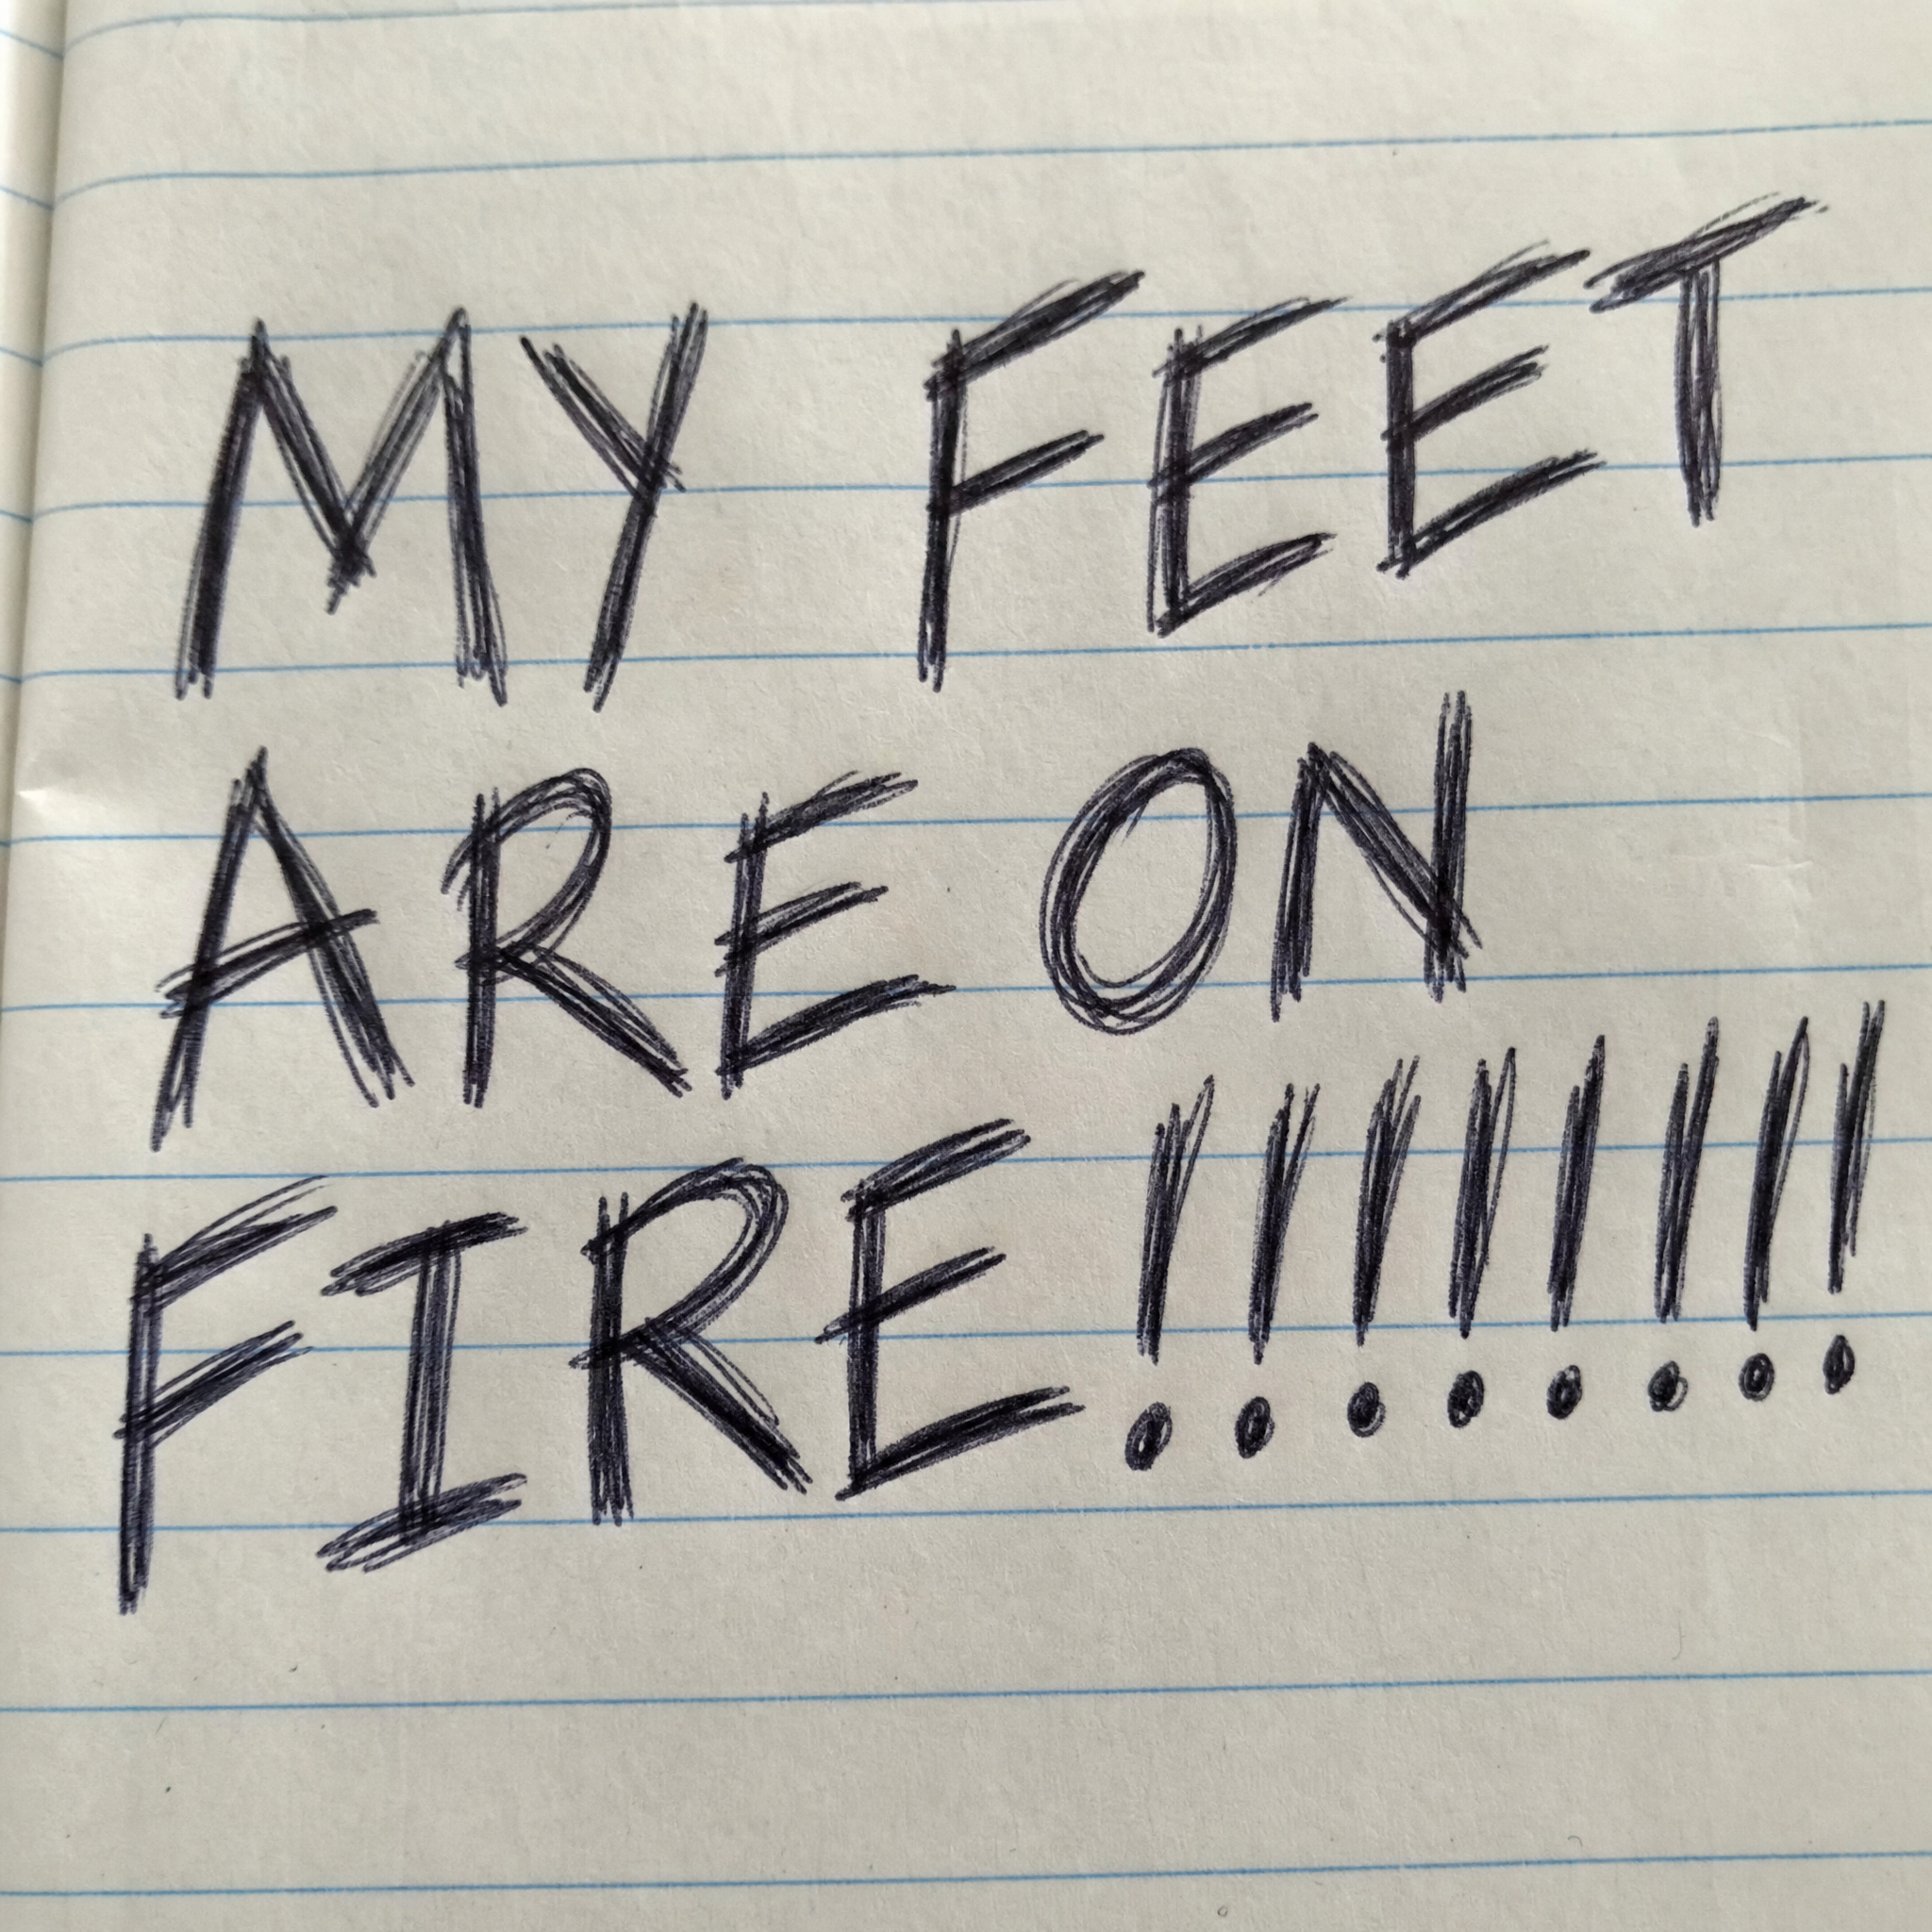 MY FEET
ARE ON
FIRE!!!!!!!!